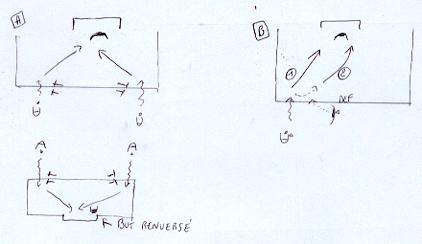 A
B
1
2
DEF
A
A
BUT RENVERSÉ